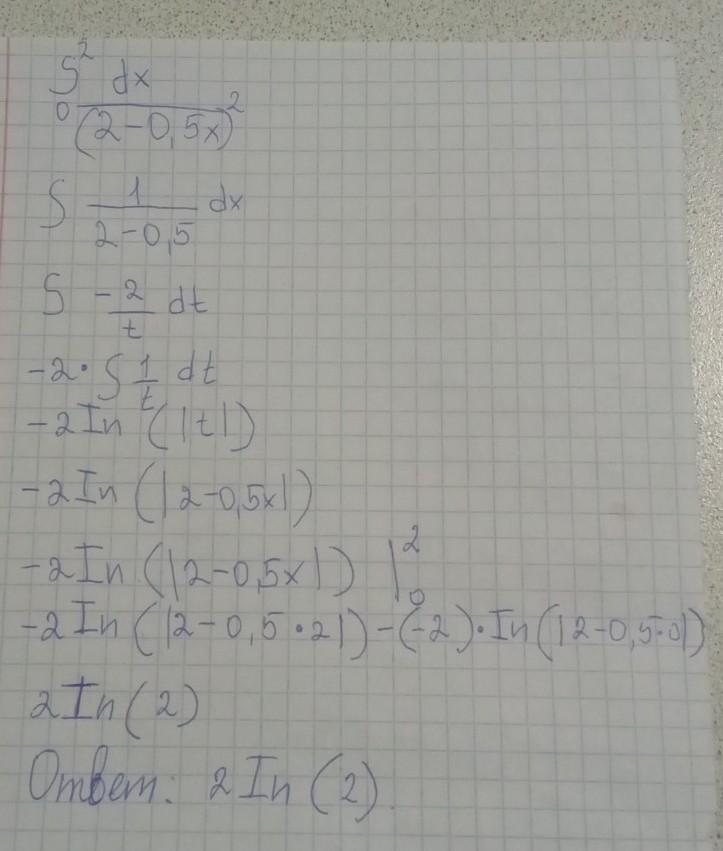 ∫₀² dx / (2-0,5x)²
∫ 1/(2-0,5) dx
∫ -2/t dt
-2·∫ 1/t dt
-2 In (|t|)
-2 In (|2-0,5x|)
-2 In (|2-0,5x|) |₀²
-2 In (|2-0,5·2|)-(-2)·In(|2-0,5·0|)
2 In (2)
Ответ: 2 In (2).